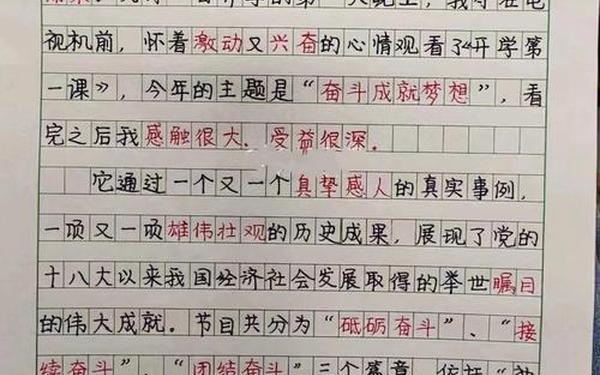 视机前，怀着激动又兴奋的心情观看了《开学第
一课》，今年的主题是“奋斗成就梦想”，看
完之后我感触很大、受益很深。
它通过一个又一个真挚感人的真实事例，
一项又一项雄伟壮观的历史成果，展现了党的
十八大以来我国经济社会发展取得的举世瞩目
的伟大成就。节目共分为“砥砺奋斗”、“接
续奋斗”、“团结奋斗”三个篇章，依托“神